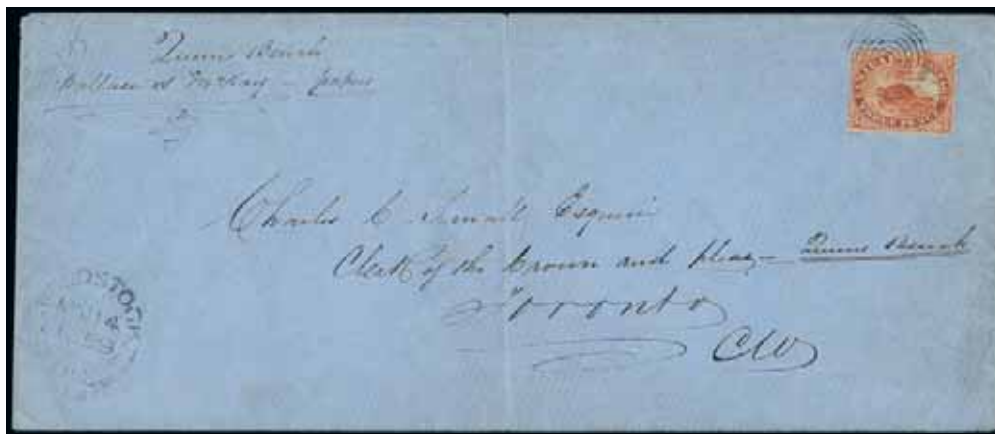 Queens Bench
Wallace vs McKay — papers
Charles C Small Esquire
Clerk of the Crown and pleas — Queens Bench
Toronto
CW